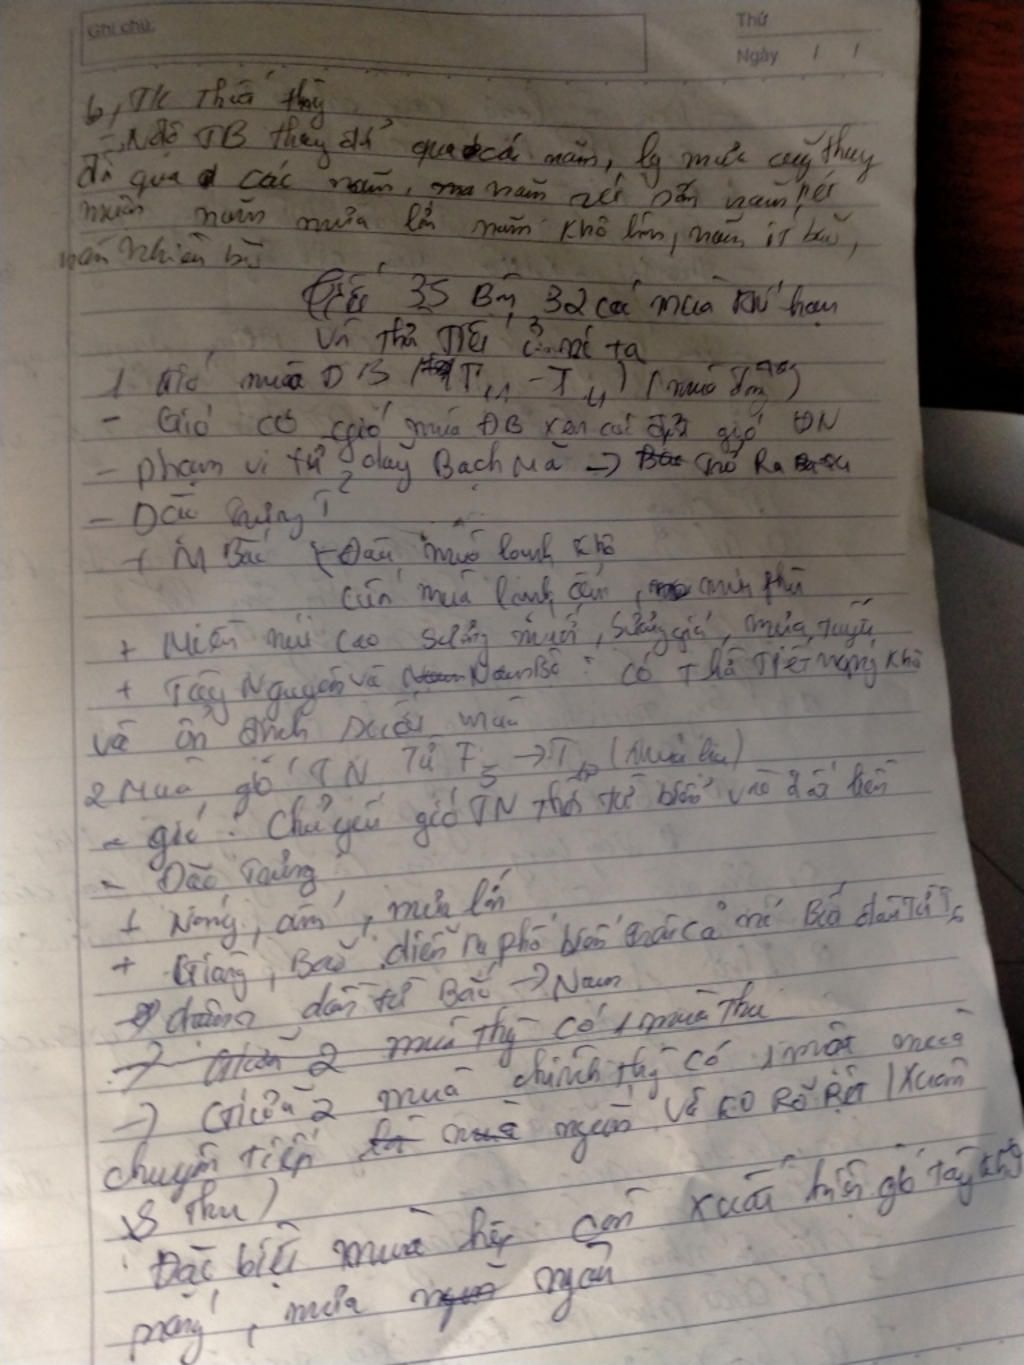 Ghi chú:
Thứ
Ngày / /
b, TK thất thg
- Nđộ TB thay đổi qua các năm, lg mưa cũg thay
đổi qua các năm, năm rét sớm năm rét
muộn năm mưa lớn năm khô lớn, năm ít bão,
năm nhiều bão
Tiết 35 Bài 32 các mùa khí hậu
và thời tiết ở nc ta
1 Gió mùa ĐB (T11 - T4) (mùa đông)
- Gió có gió mùa ĐB xen các đợt gió ĐN
- phạm vi từ dãy Bạch Mã -> trở Ra
- Đặc trưng
+ M Bắc Đầu mùa lạnh khô
cuối mùa lạnh ẩm, mưa phùn
+ Miền núi cao sương muối, sương giá, mưa tuyết
+ Tây Nguyên và Nam Bộ: có thời tiết nóng khô
và ổn định suốt mùa
2 Mùa gió TN Từ T5 -> T10 (mùa hạ)
- gió: Chủ yếu gió TN thổi từ biển vào đất liền
- Đặc trưng
+ Nóng, ẩm, mưa lớn
+ Giông, Bão diễn ra phổ biến trên cả nc Bão đầu từ T6
-> chậm dần từ Bắc -> Nam
-> Giữa 2 mùa thg có 1 mùa thu
-> Giữa 2 mùa chính thg có 1 mùa
chuyển tiếp ngắn và ko Rõ Rệt (Xuân
& Thu)
Đặc biệt mùa hạ còn xuất hiện gió tây khô
nóng, mưa ngâu